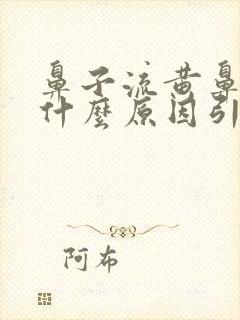 鼻子流黄鼻
什麽原因引
阿布